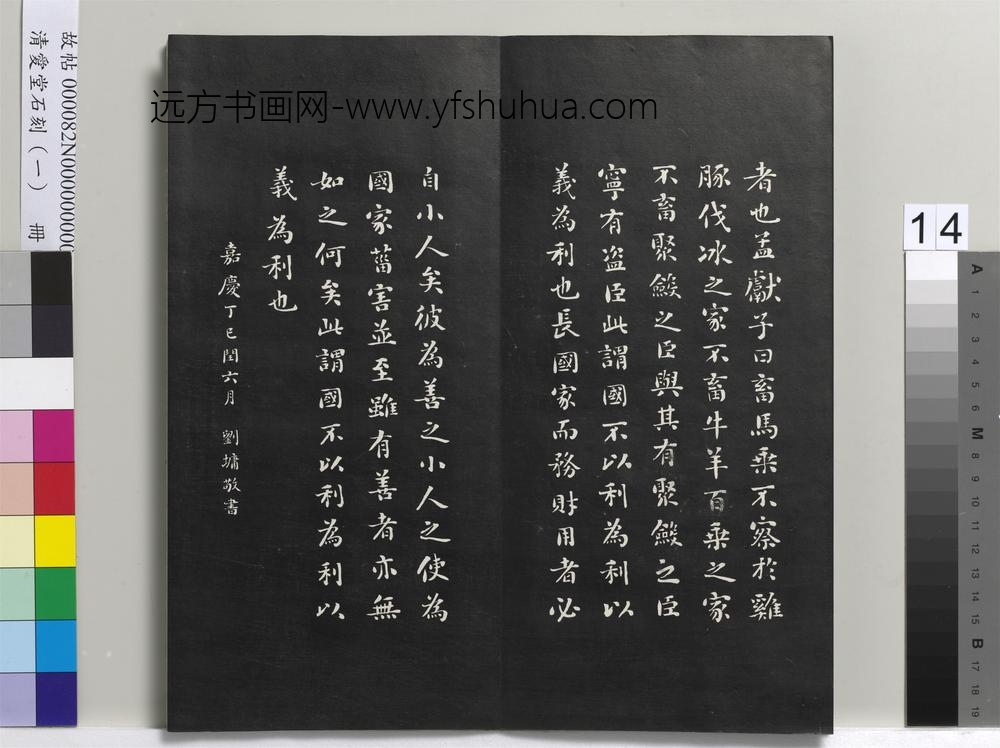 者也孟獻子曰畜馬乗不察於雞
豚伐冰之家不畜牛羊百乗之家
不畜聚斂之臣與其有聚斂之臣
寧有盗臣此謂國不以利為利以
義為利也長國家而務財用者必
自小人矣彼為善之小人之使為
國家菑害並至雖有善者亦無
如之何矣此謂國不以利為利以
義為利也
嘉慶丁巳閏六月 劉墉敬書
远方书画网-www.yfshuhua.com
故帖 000082N00000000
清愛堂石刻（一） 冊
14
A
1
2
3
4
5
6
M
8
9
10
11
12
13
14
15
B
17
18
19